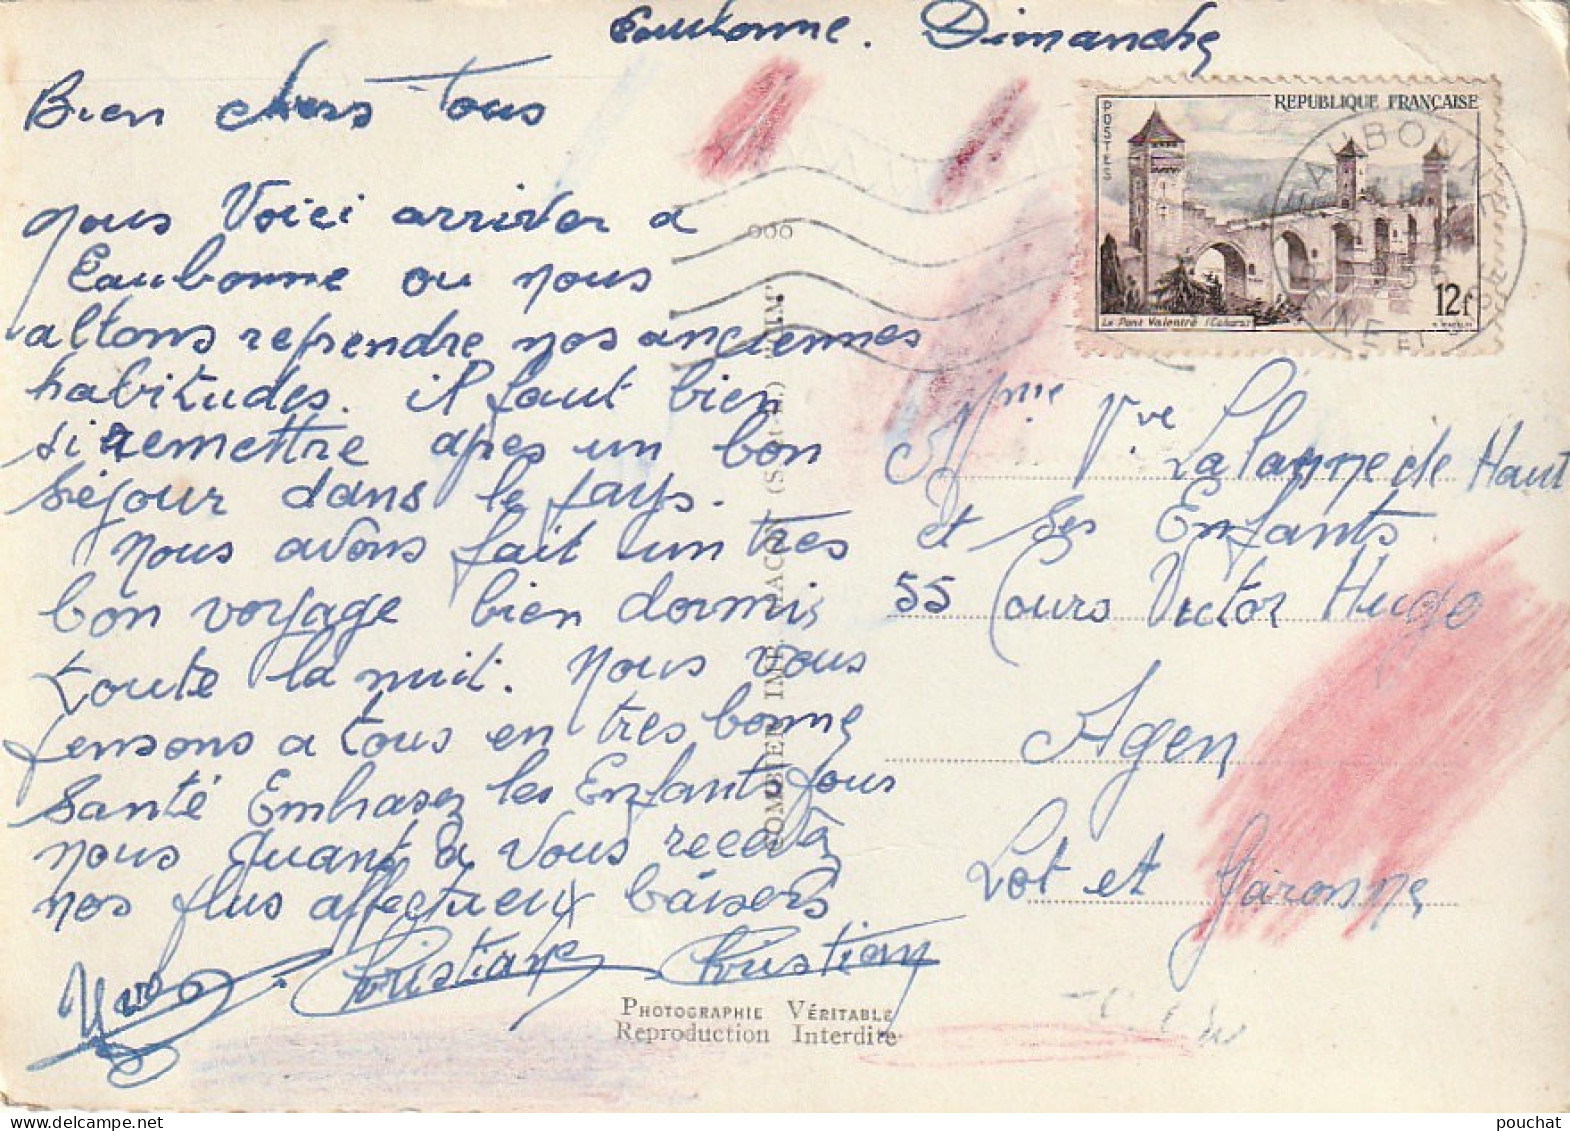 Eaubonne. Dimanche
Bien chers Tous
nous Voici arriver a
Eaubonne ou nous
allons reprendre nos anciennes
habitudes. il faut bien
si remettre apres un bon
séjour dans le pays.
Nous avons fait un tres
bon voyage bien dormis
toute la nuit. Nous vous
pensons a tous en tres bonne
Santé Embrasez les Enfants pour
nous Quant a Vous recever
nos plus affectueux baisers
Christiane Christian
REPUBLIQUE FRANÇAISE
POSTES
Le Pont Valentré (Cahors)
12f
EAUBONNE
SEINE ET OISE
000
COMBIER IMP. MACON (S.-et-L.) "CIM"
Mme Vve Lalanne de Haut
et Ses Enfants
55 Cours Victor Hugo
Agen
Lot et Garonne
PHOTOGRAPHIE VÉRITABLE
Reproduction Interdite
pouchat